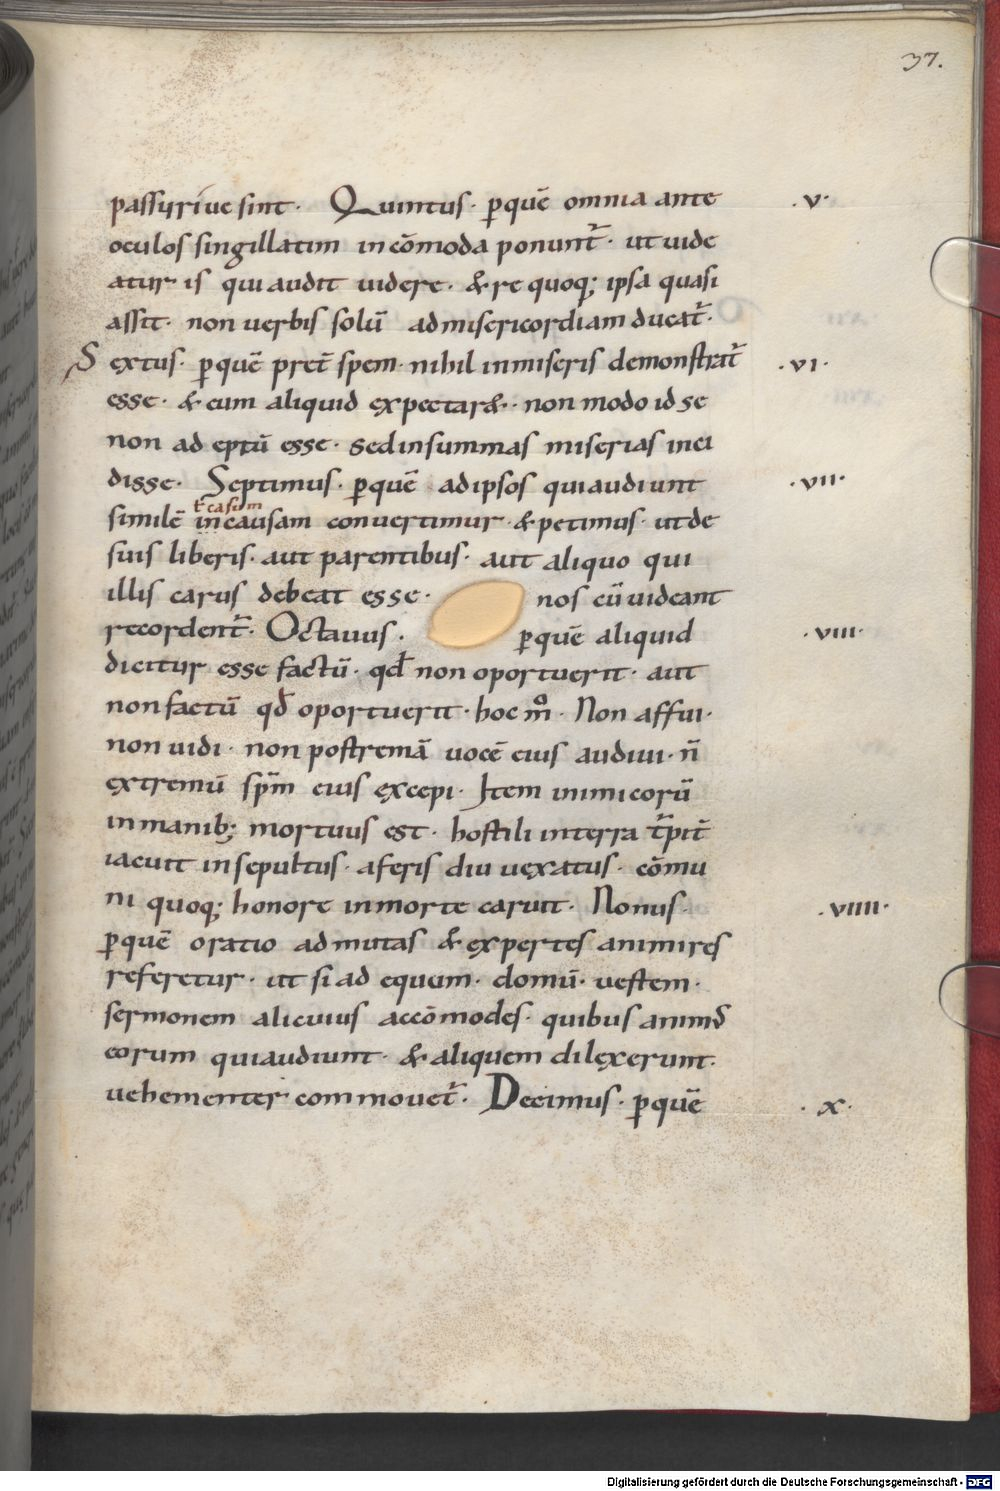 37.
passi irive sint · Quintus · p̱quē omnia ante · v ·
oculos singillatim incōmoda ponunt᷑ · ut vide
atur is qui audit videre · & re quoq; ipsa quasi
assit · non verbis solū ad misericordiam ducat᷑ ·
Sextus · p̱quē pret̄ spem · nihil in miseris demonstrat᷑ · vi ·
esse · & cum aliquid expectar& · non modo id se
non adeptū esse · sed in summas miserias inci
disse · Septimus · p̱quē ad ipsos qui audiunt · vii ·
ł casum
similē in causam convertimur · & petimus · ut de
suis liberis · aut parentibus · aut aliquo qui
illis carus debeat esse · nos cū videant
recordent᷑ · Octavus · p̱quē aliquid · viii ·
dicitur esse factū · qđ non oportuerit · aut
non factū qđ oportuerit · hoc mͦ · Non affui ·
non vidi · non postremā vocē eius audivi · n̄
extremū sp̄m eius excepi · Item inimicorū
in manib; mortuus est · hostili in terra t᷑pit᷑
iacuit insepultus · a feris diu vexatus · cōmu
ni quoq; honore in morte caruit · Nonus · · viiii ·
p̱quē oratio ad mutas & expertes animi res
referetur · ut si ad equum · domū · vestem ·
sermonem alicuius accōmodes · quibus animꝰ
eorum qui audiunt · & aliquem dilexerunt ·
vehementer commovet᷑ · Decimus · p̱quē · x ·
Digitalisierung gefördert durch die Deutsche Forschungsgemeinschaft - DFG